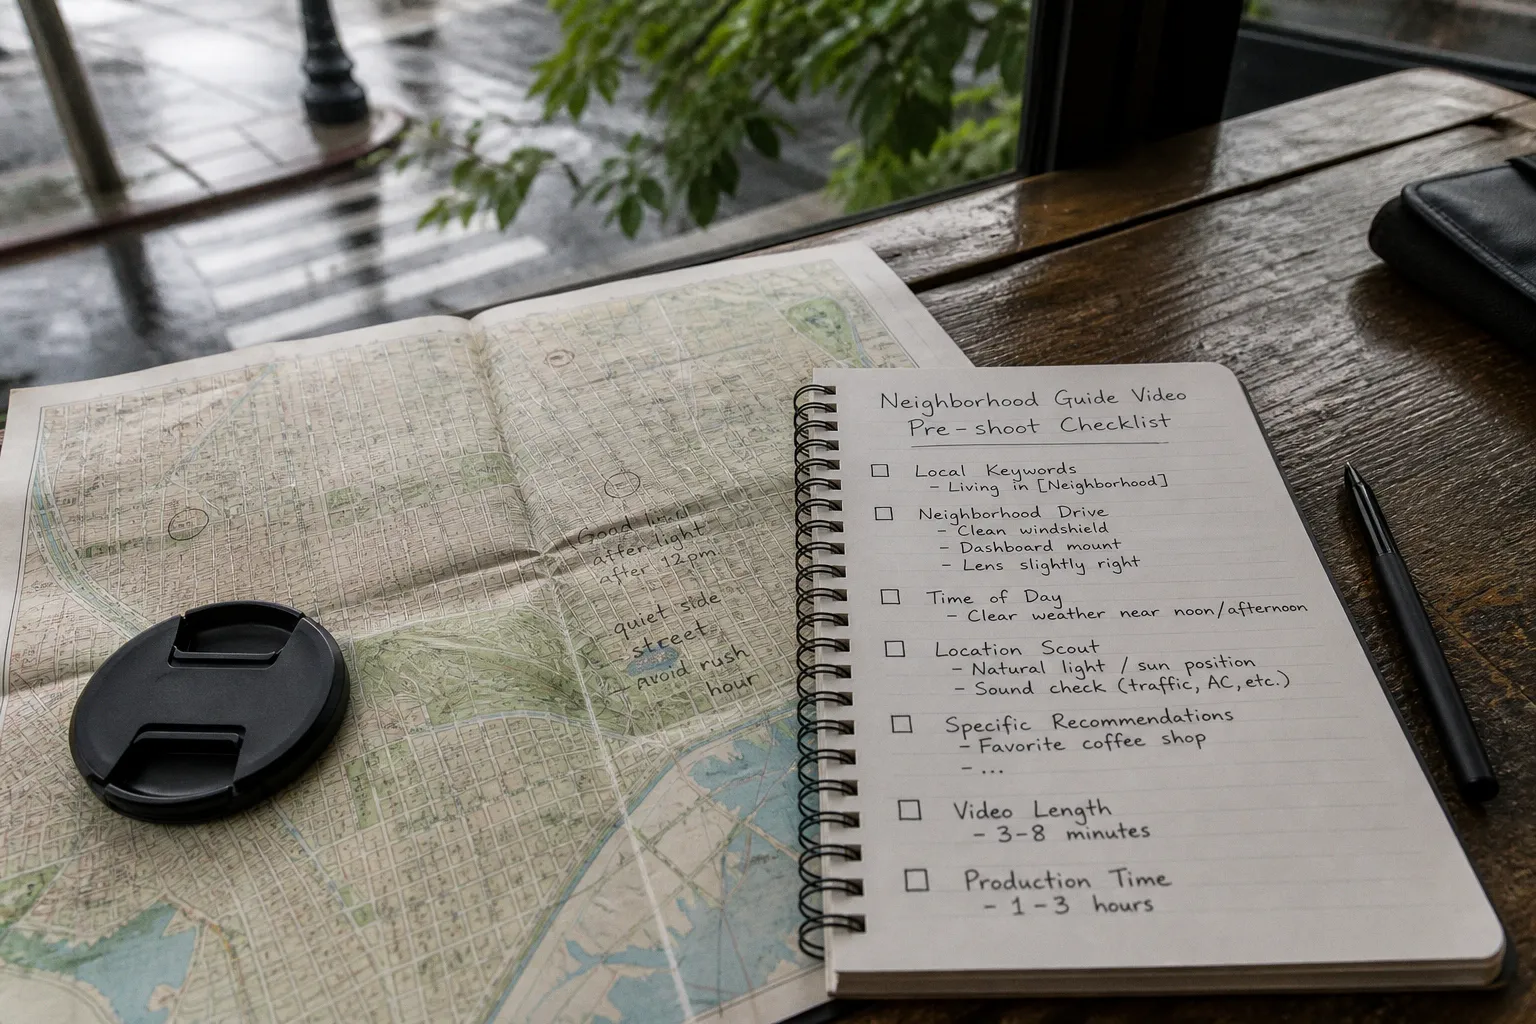 Good
after light
after 12pm
quiet side
street
avoid rush
hour
Neighborhood Guide Video
Pre-shoot Checklist
Local Keywords
- Living in [Neighborhood]
Neighborhood Drive
- Clean windshield
- Dashboard mount
- Lens slightly right
Time of Day
- Clear weather near noon/afternoon
Location Scout
- Natural light / sun position
- Sound check (traffic, AC, etc.)
Specific Recommendations
- Favorite coffee shop
- ...
Video Length
- 3-8 minutes
Production Time
- 1-3 hours